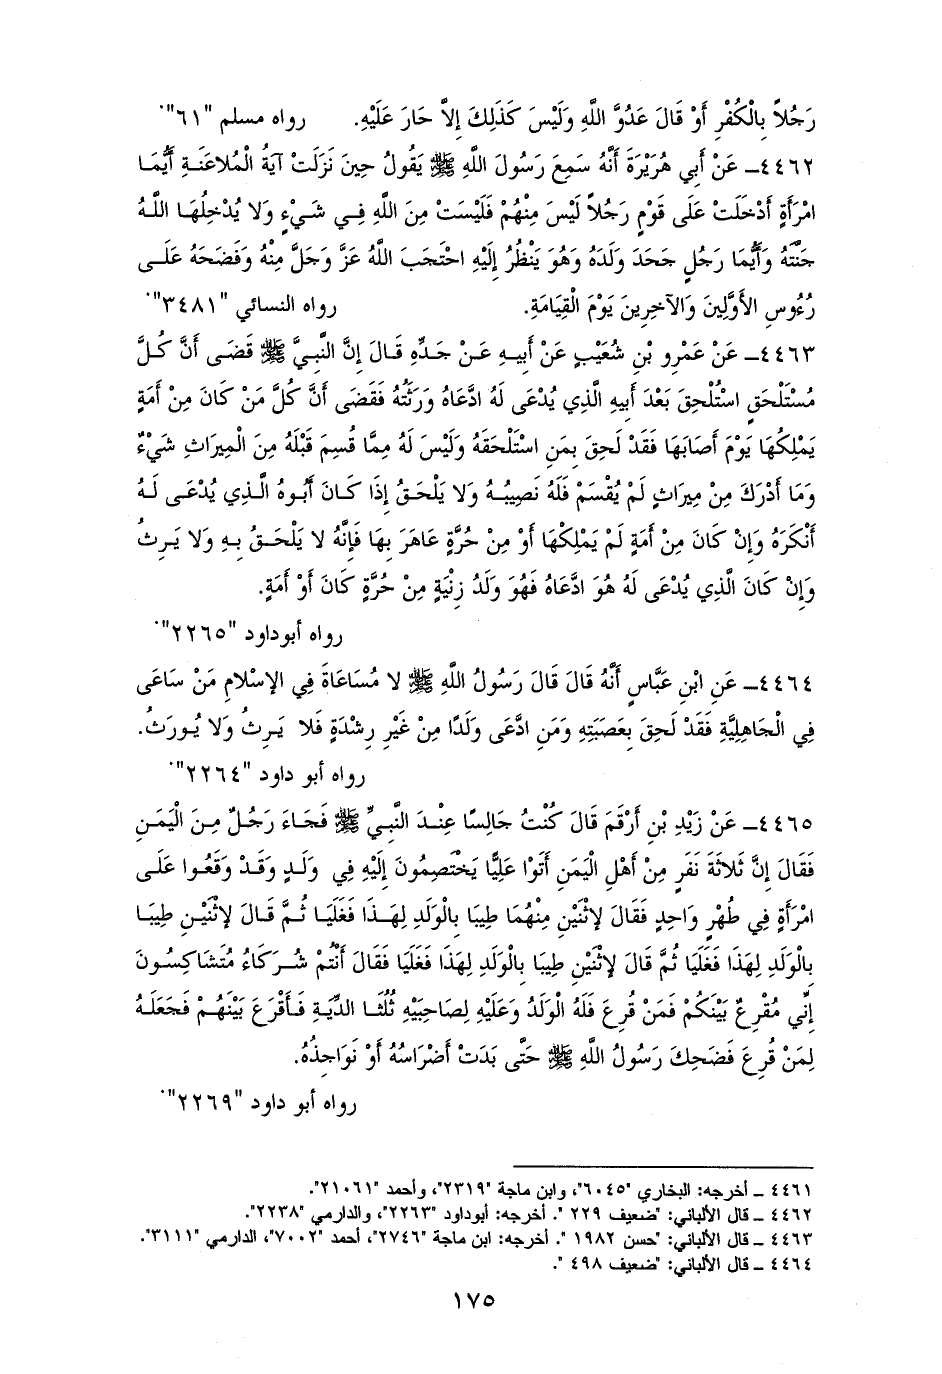 رَجُلاً بِالْكُفْرِ أَوْ قَالَ عَدُوَّ اللَّهِ وَلَيْسَ كَذَلِكَ إِلاَّ حَارَ عَلَيْهِ. رواه مسلم "٦١".
٤٤٦٢ـ عَنْ أَبِي هُرَيْرَةَ أَنَّهُ سَمِعَ رَسُولَ اللَّهِ ﷺ يَقُولُ حِينَ نَزَلَتْ آيَةُ الْمُلاعَنَةِ أَيُّمَا
امْرَأَةٍ أَدْخَلَتْ عَلَى قَوْمٍ رَجُلاً لَيْسَ مِنْهُمْ فَلَيْسَتْ مِنَ اللَّهِ فِي شَيْءٍ وَلا يُدْخِلُهَا اللَّهُ
جَنَّتَهُ وَأَيُّمَا رَجُلٍ جَحَدَ وَلَدَهُ وَهُوَ يَنْظُرُ إِلَيْهِ احْتَجَبَ اللَّهُ عَزَّ وَجَلَّ مِنْهُ وَفَضَحَهُ عَلَى
رُءُوسِ الأَوَّلِينَ وَالآخِرِينَ يَوْمَ الْقِيَامَةِ. رواه النسائي "٣٤٨١".
٤٤٦٣ـ عَنْ عَمْرِو بْنِ شُعَيْبٍ عَنْ أَبِيهِ عَنْ جَدِّهِ قَالَ إِنَّ النَّبِيَّ ﷺ قَضَى أَنَّ كُلَّ
مُسْتَلْحَقٍ اسْتُلْحِقَ بَعْدَ أَبِيهِ الَّذِي يُدْعَى لَهُ ادَّعَاهُ وَرَثَتُهُ فَقَضَى أَنَّ كُلَّ مَنْ كَانَ مِنْ أَمَةٍ
يَمْلِكُهَا يَوْمَ أَصَابَهَا فَقَدْ لَحِقَ بِمَنِ اسْتَلْحَقَهُ وَلَيْسَ لَهُ مِمَّا قُسِمَ قَبْلَهُ مِنَ الْمِيرَاثِ شَيْءٌ
وَمَا أَدْرَكَ مِنْ مِيرَاثٍ لَمْ يُقْسَمْ فَلَهُ نَصِيبُهُ وَلا يَلْحَقُ إِذَا كَانَ أَبُوهُ الَّذِي يُدْعَى لَهُ
أَنْكَرَهُ وَإِنْ كَانَ مِنْ أَمَةٍ لَمْ يَمْلِكْهَا أَوْ مِنْ حُرَّةٍ عَاهَرَ بِهَا فَإِنَّهُ لا يَلْحَقُ بِهِ وَلا يَرِثُ
وَإِنْ كَانَ الَّذِي يُدْعَى لَهُ هُوَ ادَّعَاهُ فَهُوَ وَلَدُ زِنْيَةٍ مِنْ حُرَّةٍ كَانَ أَوْ أَمَةٍ.
رواه أبوداود "٢٢٦٥".
٤٤٦٤ـ عَنِ ابْنِ عَبَّاسٍ أَنَّهُ قَالَ قَالَ رَسُولُ اللَّهِ ﷺ لا مُسَاعَاةَ فِي الإِسْلامِ مَنْ سَاعَى
فِي الْجَاهِلِيَّةِ فَقَدْ لَحِقَ بِعَصَبَتِهِ وَمَنِ ادَّعَى وَلَدًا مِنْ غَيْرِ رِشْدَةٍ فَلا يَرِثُ وَلا يُورَثُ.
رواه أبو داود "٢٢٦٤".
٤٤٦٥ـ عَنْ زَيْدِ بْنِ أَرْقَمَ قَالَ كُنْتُ جَالِسًا عِنْدَ النَّبِيِّ ﷺ فَجَاءَ رَجُلٌ مِنَ الْيَمَنِ
فَقَالَ إِنَّ ثَلاثَةَ نَفَرٍ مِنْ أَهْلِ الْيَمَنِ أَتَوْا عَلِيًّا يَخْتَصِمُونَ إِلَيْهِ فِي وَلَدٍ وَقَدْ وَقَعُوا عَلَى
امْرَأَةٍ فِي طُهْرٍ وَاحِدٍ فَقَالَ لاِثْنَيْنِ مِنْهُمَا طِيبَا بِالْوَلَدِ لِهَذَا فَغَلَيَا ثُمَّ قَالَ لاِثْنَيْنِ طِيبَا
بِالْوَلَدِ لِهَذَا فَغَلَيَا ثُمَّ قَالَ لاِثْنَيْنِ طِيبَا بِالْوَلَدِ لِهَذَا فَغَلَيَا فَقَالَ أَنْتُمْ شُرَكَاءُ مُتَشَاكِسُونَ
إِنِّي مُقْرِعٌ بَيْنَكُمْ فَمَنْ قُرِعَ فَلَهُ الْوَلَدُ وَعَلَيْهِ لِصَاحِبَيْهِ ثُلُثَا الدِّيَةِ فَأَقْرَعَ بَيْنَهُمْ فَجَعَلَهُ
لِمَنْ قُرِعَ فَضَحِكَ رَسُولُ اللَّهِ ﷺ حَتَّى بَدَتْ أَضْرَاسُهُ أَوْ نَوَاجِذُهُ.
رواه أبو داود "٢٢٦٩".
٤٤٦١ ـ أخرجه: البخاري "٦٠٤٥"، وابن ماجة "٢٣١٩"، وأحمد "٢١٠٦١".
٤٤٦٢ ـ قال الألباني: "ضعيف ٢٢٩ ". أخرجه: أبوداود "٢٢٦٣"، والدارمي "٢٢٣٨".
٤٤٦٣ ـ قال الألباني: "حسن ١٩٨٢ ". أخرجه: ابن ماجة "٢٧٤٦"، أحمد "٧٠٠٢"، الدارمي "٣١١١".
٤٤٦٤ ـ قال الألباني: "ضعيف ٤٩٨ ".
١٧٥